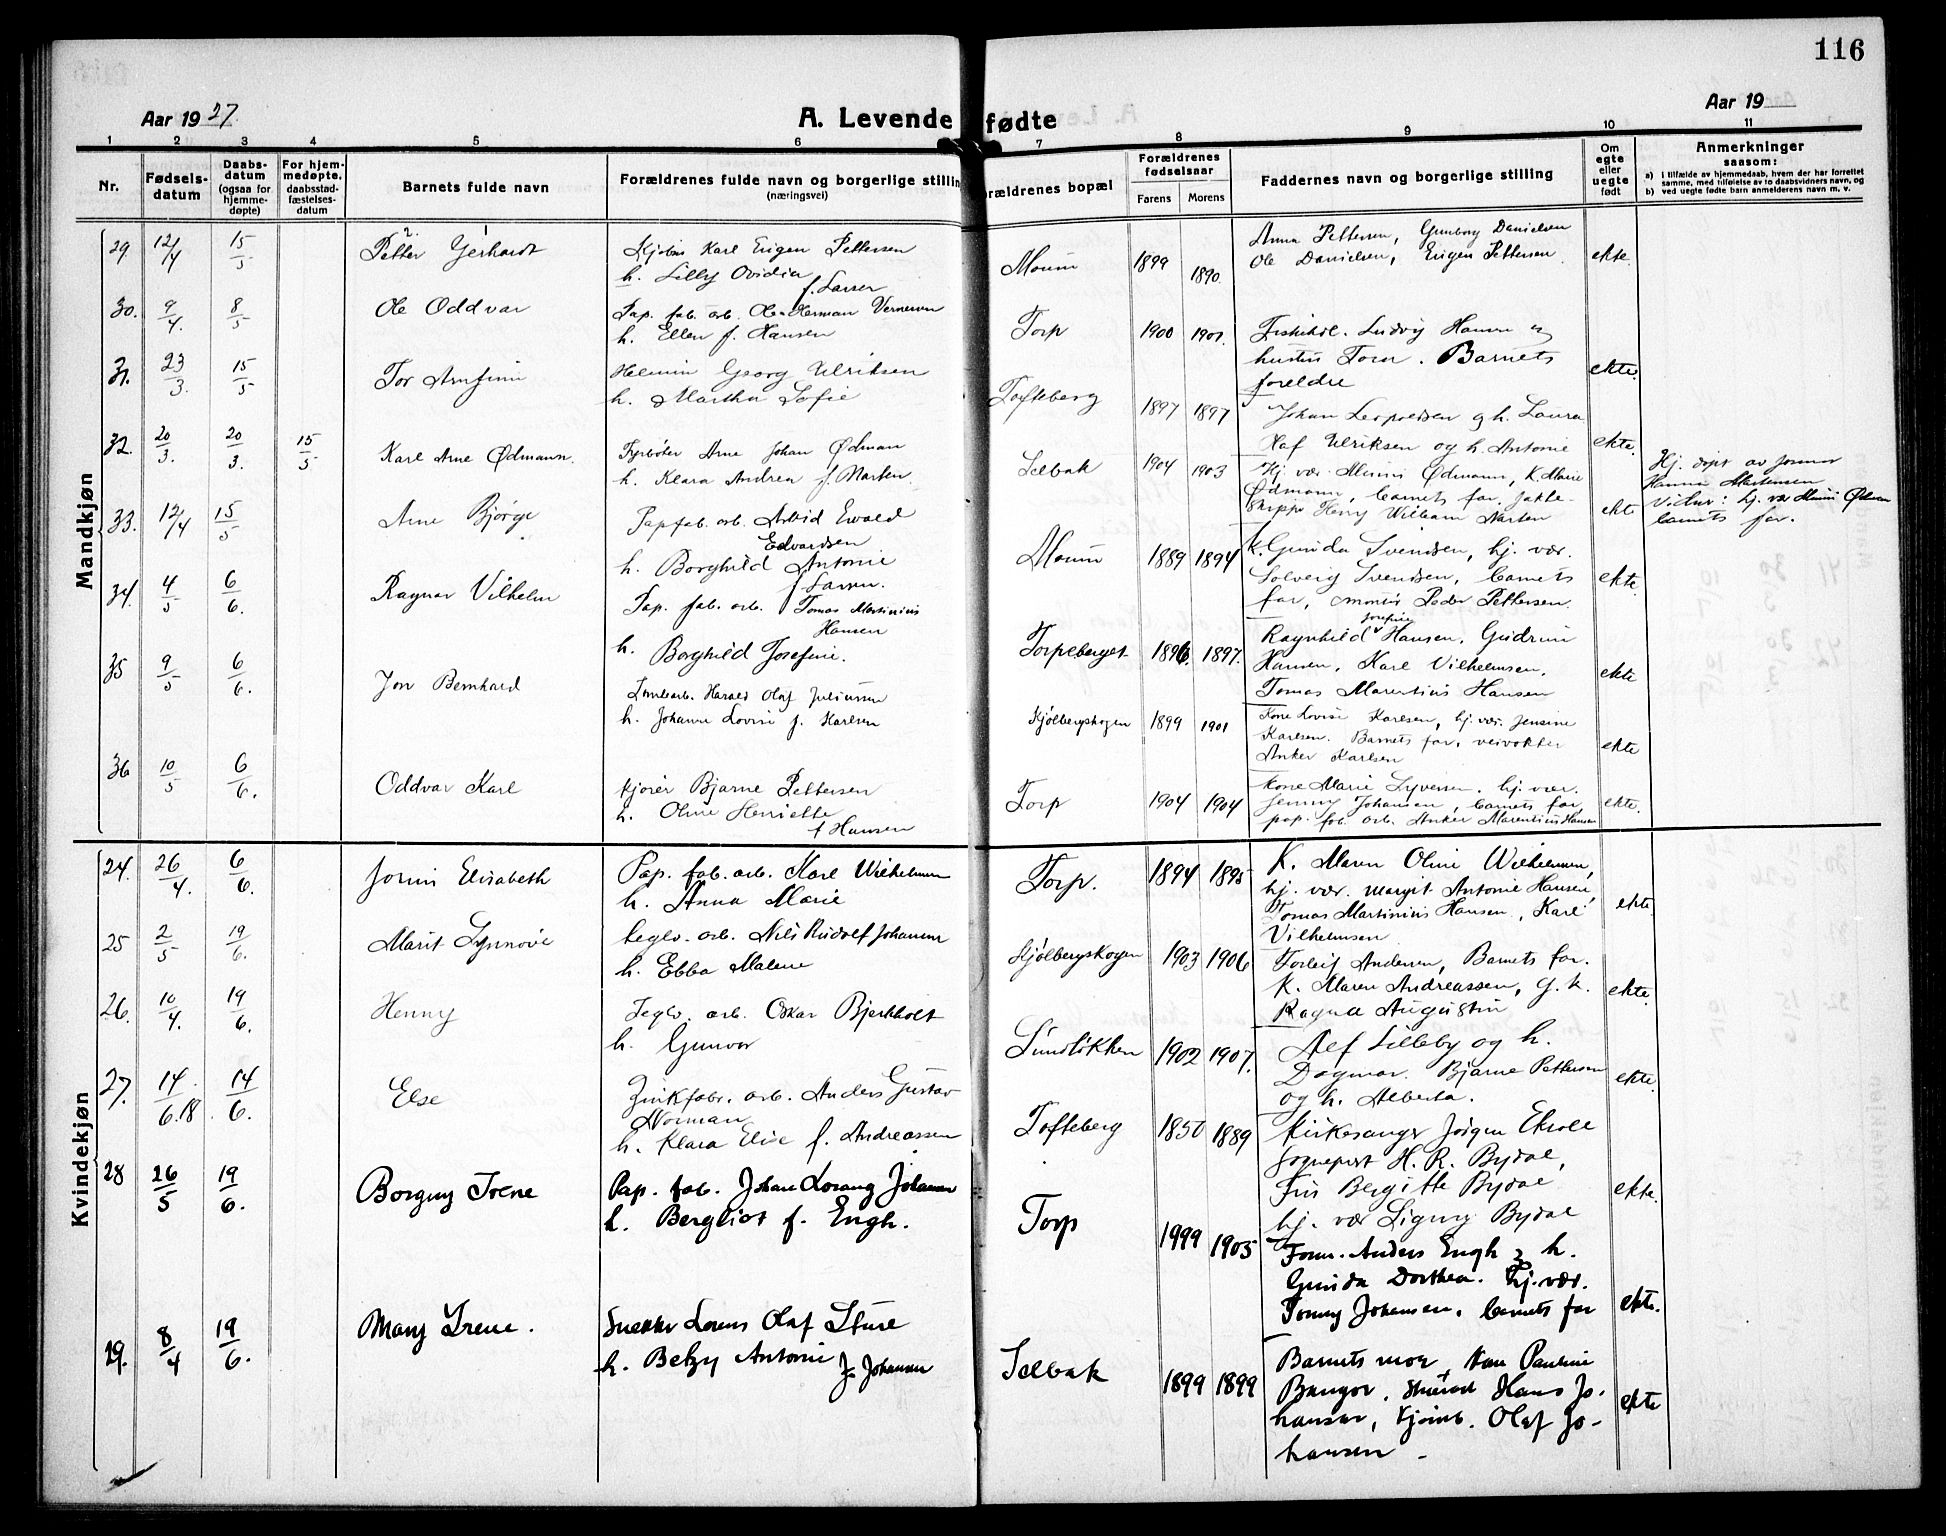 116
Aar 1927
A. Levende fødte
Aar 19
1 2 3 4 5 6 7 8 9 10 11
Nr.
Fødsels-
datum
Daabs-
datum
(ogsaa for
hjemme-
døpte)
For hjem-
medøpte,
daabsstad-
fæstelses-
datum
Barnets fulde navn
Forældrenes fulde navn og borgerlige stillin
(næringsvei)
rældrenes bopæl
Forældrenes
fødselsaar
Farens Morens
Faddernes navn og borgerlige stilling
Om
egte
eller
uegte
født
Anmerkninger
saasom:
a) i tilfælde av hjemmedaab, hvem der har forrettet
samme, med tilføielse av to daabsvidners navn, og
b) ved uegte fødte barn anmelderens navn m. v.
Mandkjøn
29. 12/4 15/5 Petter Gerhardt
Karl Eugen Pettersen
h. Lilly Ovidia
f. Larsen
Moum 1899 1890.
Anna Pettersen, Gunborg Danielsen
Ole Danielsen, Eugen Pettersen ekte.
30. 9/4. 8/5 Ole Oddvar
Pap. fab. arb. Ole Herman
h. Ellen f. Hansen
Torp 1900 1901.
Ludvig Hansen og
hustru . Barnets
foreldre ekte.
31. 23/3. 15/5 Tor Arnfinn
Georg Ulriksen
h. Martha Sofie
Tofteberg 1897 1897
Johan Leopoldsen og h. Laura
Olaf Ulriksen og h. Antonie ekte.
32. 20/3. 20/3. 15/5 Karl Arne Ødmann.
Fyrbøter Arne Johan Ødman
h. Klara Andrea f. Marten.
Selbak 1904 1903
Hj. vær. Minni Ødmann, K. Marie
Ødmann, barnets far,
Henry William Marten ekte
Hj. døpt av
Hanna Mortensen
Vidner: hj. vær Minni Ødman
barnets far.
33. 12/4 15/5 Arne Bjørge
Papfab. arb. Ewald
Edvardsen
h. Borghild Antonie
f. Larsen.
Moum 1889 1894
K. Gunda Svendsen, hj. vær.
Solveig Svendsen, barnets
far, montør Peder Pettersen. ekte.
34. 4/5 6/6. Ragnar Vilhelm
Pap. fab. arb. Tomas Martinius
Hansen
h. Borghild Josefine.
Torpeberget 1896. 1897.
Josefine
Ragnhild Hansen, Gudrun
Hansen, Karl Vilhelmsen,
Tomas Marentius Hansen ekte
35 9/5 6/6. Jon Bernhard
Harald Olaf Juliussen
h. Johanne Lovise f. Karlsen
Kjølbergskogen 1899 1901
Kone Lovise Karlsen, hj. vær. Jensine
Karlsen. Barnets far, veivokter
Anker Karlsen ekte
36 10/5 6/6. Oddvar Karl
Kjører Bjarne Pettersen
h. Oline Henriette
f Hansen
Torp 1904 1904
Kone Marie Syversen. hj. vær.
Jenny Johansen, barnets far,
pap. fab. arb. Anker Marentius Hansen ekte.
Kvindekjøn
24. 26/4. 6/6. Jorun Elisabeth
Pap. fab. arb. Karl Wilhelmsen
h. Anna Marie
Torp. 1894 1895
K. Maren Oline Wilhelmsen,
hj. vær. Margit Antonie Hansen,
Tomas Martinius Hansen, Karl
Vilhelmsen ekte.
25 2/5 19/6. Marit Synnøve
teglv. arb. Nils Rudolf Johansen
h. Ebba Malene
Kjølbergskogen 1903 1906
Torleif Andersen, Barnets far.
K. Maren Andreassen, g. k.
Ragna Augustin ekte.
26. 10/4. 19/6. Henny
Teglv. arb. Oskar Bjerkholt
h. Gunvor
Sundløkken 1902 1907.
Alf Lilleby og h.
Dagmar. Bjarne Pettersen
og h. Alberta. ekte.
27. 14/6.18. 14/6. Else
Zinkfabr. arb. Anders Gustav
Norman
h. Klara Elise f. Andreassen
Tofteberg 1850 1889
Kirkesanger Jørgen Ekroll
Sogneprest H. R. Bydal,
Fru Bergitte Bydal
hj. vær Signy Bydal ekte.
28 26/5 19/6. Borgny Irene
Pap. fab. Johan Lorang Johansen
h. Bergliot f. Engh.
Torp 1999 1905
Form. Anders Engh og h.
Gunda Dorthea. Hj. vær.
Tonny Johansen, barnets far ekte.
29. 8/4 19/6. Mary Irene.
Snekker Lorens Olaf Sture
h. Betzy Antonie f. Johansen
Selbak 1899 1899
Barnets mor, Kone Pauline
Bangor, Hans Jo-
hansen, Kjørb. Olaf Jo-
hansen - ekte